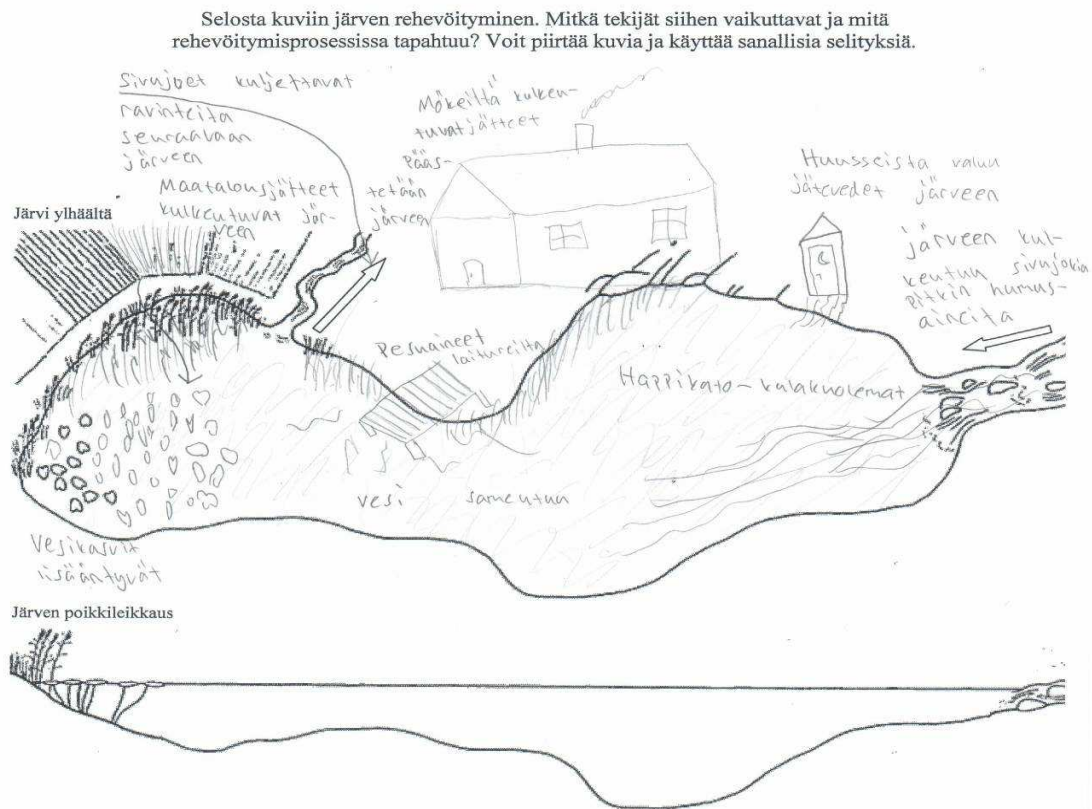 Selosta kuviin järven rehevöityminen. Mitkä tekijät siihen vaikuttavat ja mitä
rehevöitymisprosessissa tapahtuu? Voit piirtää kuvia ja käyttää sanallisia selityksiä.
Sivujoet kuljettavat
ravinteita
seuraavaan
järveen
Mökeiltä kulkeu-
tuvat jätteet
pääs-
tetään
järveen
Maatalousjätteet
kulkeutuvat jär-
veen
Huusseista valuu
jätevedet järveen
järveen kul-
keutuu sivujokia
pitkin humus-
aineita
Järvi ylhäältä
Pesuaineet
laitureilta
Happikato - kalakuolemat
vesi sameutuu
Vesikasvit
lisääntyvät
Järven poikkileikkaus